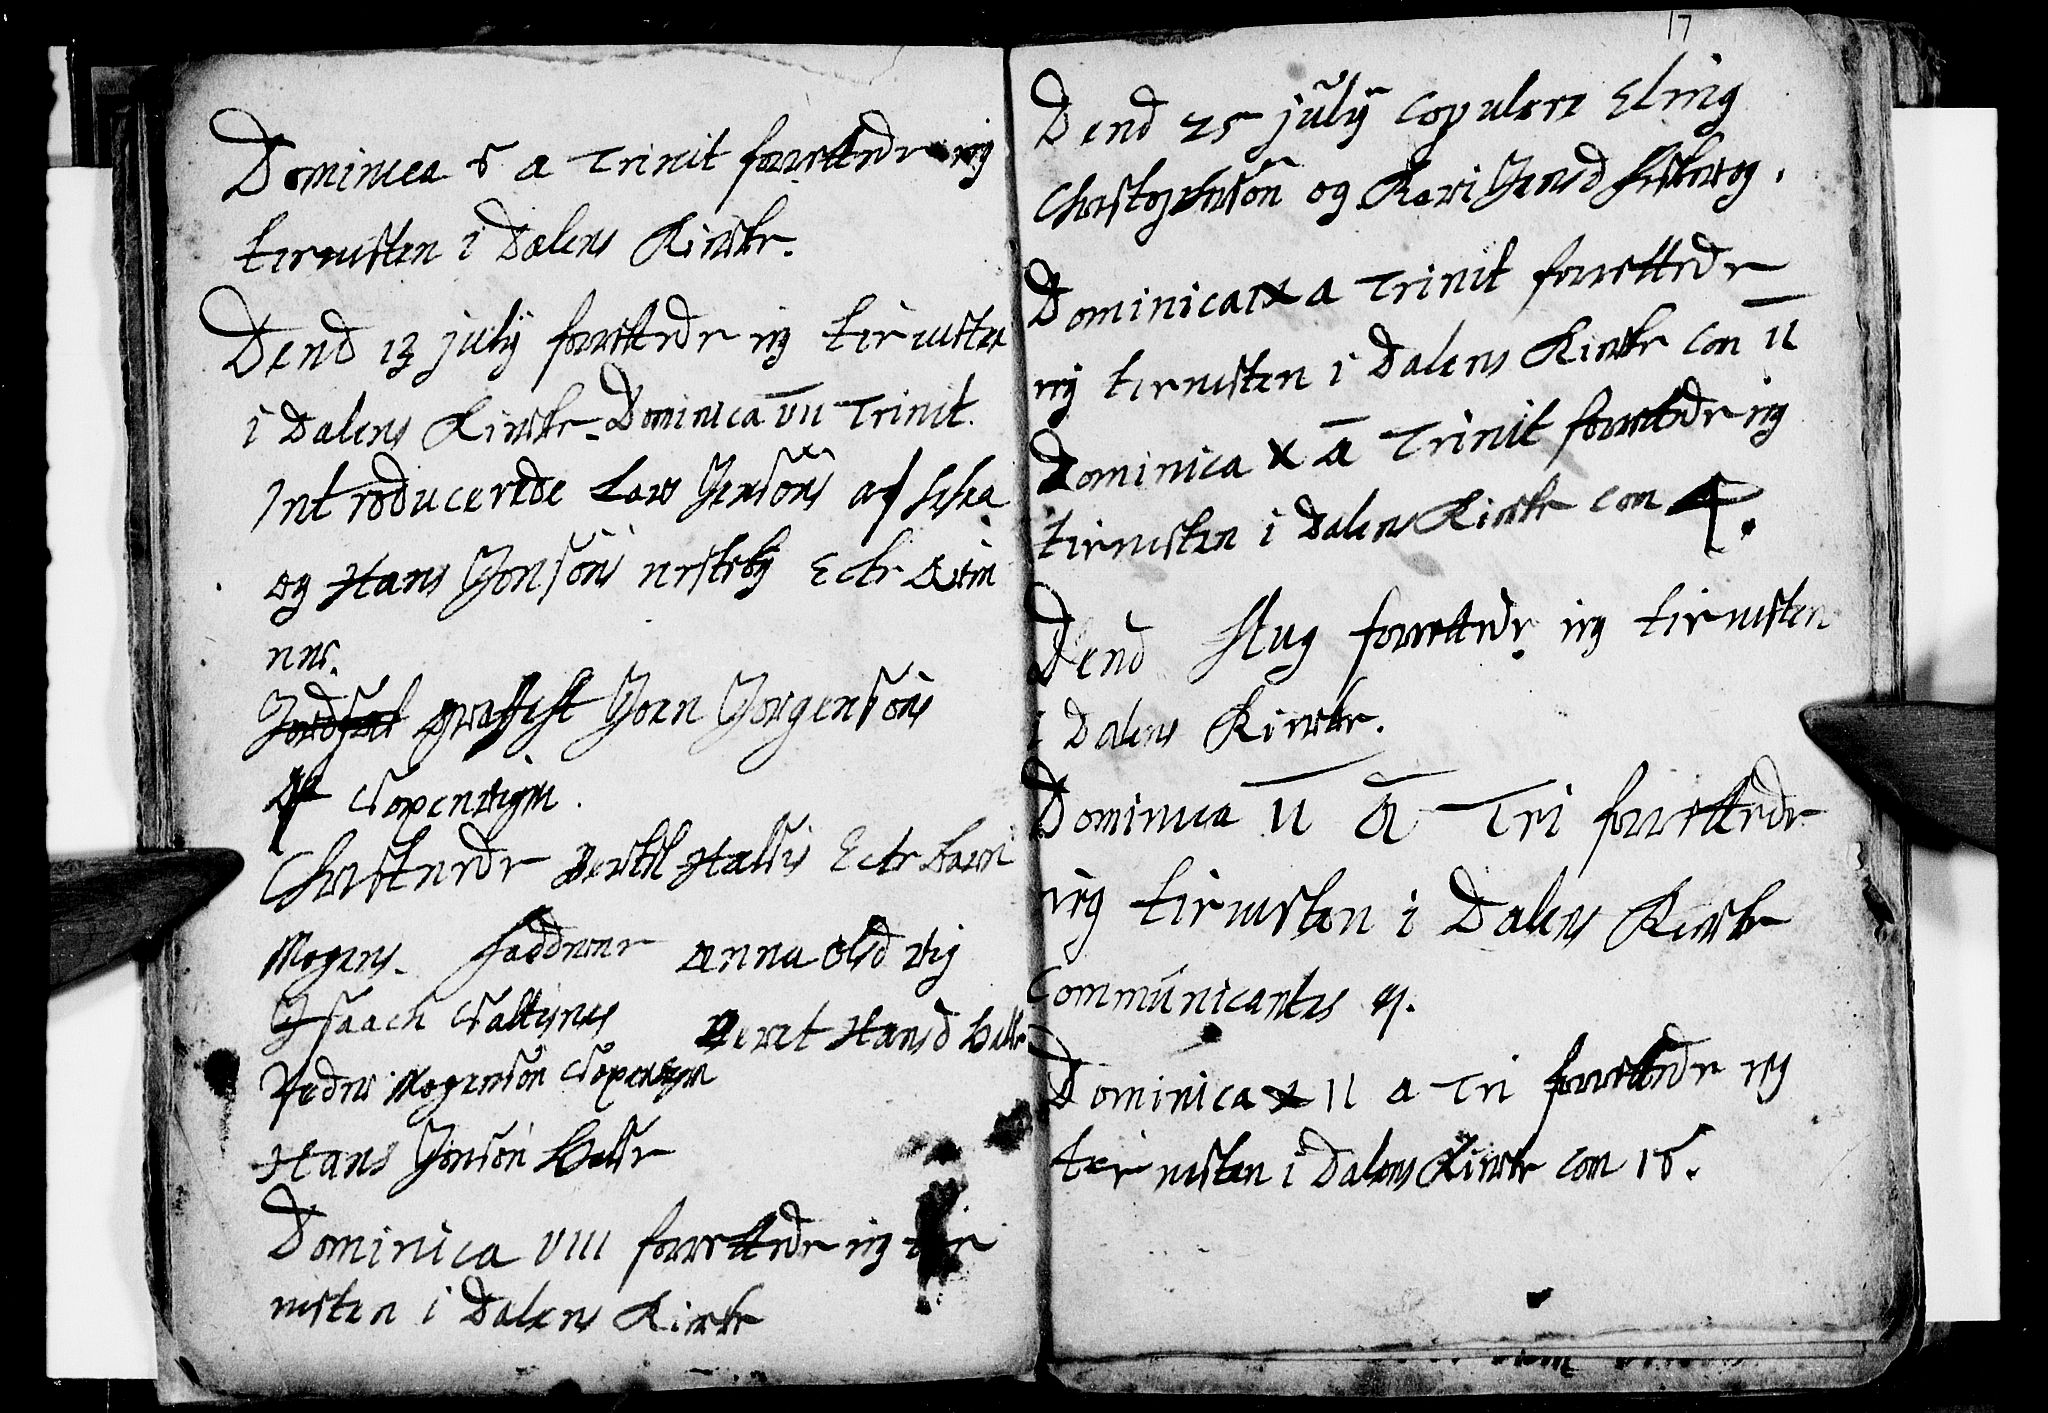 Dominica 5 a Trinit forrettede ieg
tienisten i Dalens Kircke.
Dend 13 july forrettede ieg tienisten
i Dalens Kircke. Dominica VII Trinit.
Introducerede Lars Jensöns af
og Hans Jonsöns Ecte Qvin
ner.
Jordfæst Joen Jorgensöns
af
Christnede Bertel Halsis Ecte barn
Mogens. Faddrener Anna Olsd Vig
Isaach Beret Hansd
Peder Mogensön
Hans Jönsön
Dominica VIII forrettede ieg tie
nisten i Dalens Kircke
17
Dend 25 july Copulere Eling
Christophersön og Kari Jensd
Dominica IX a Trinit forrettede
ieg tienisten i Dalens Kircke Con 11
Dominica X a Trinit forrettede ieg
tienisten i Dalens Kircke Con 4.
Dend Aug forrettede ieg tienisten
i Dalens Kircke.
Dominica 11 a Tri forrettede
ieg tienisten i Dalens Kircke
Communicantes 9.
Dominica X II a Tri forrettede ieg
tienisten i Dalens Kircke Con 15.